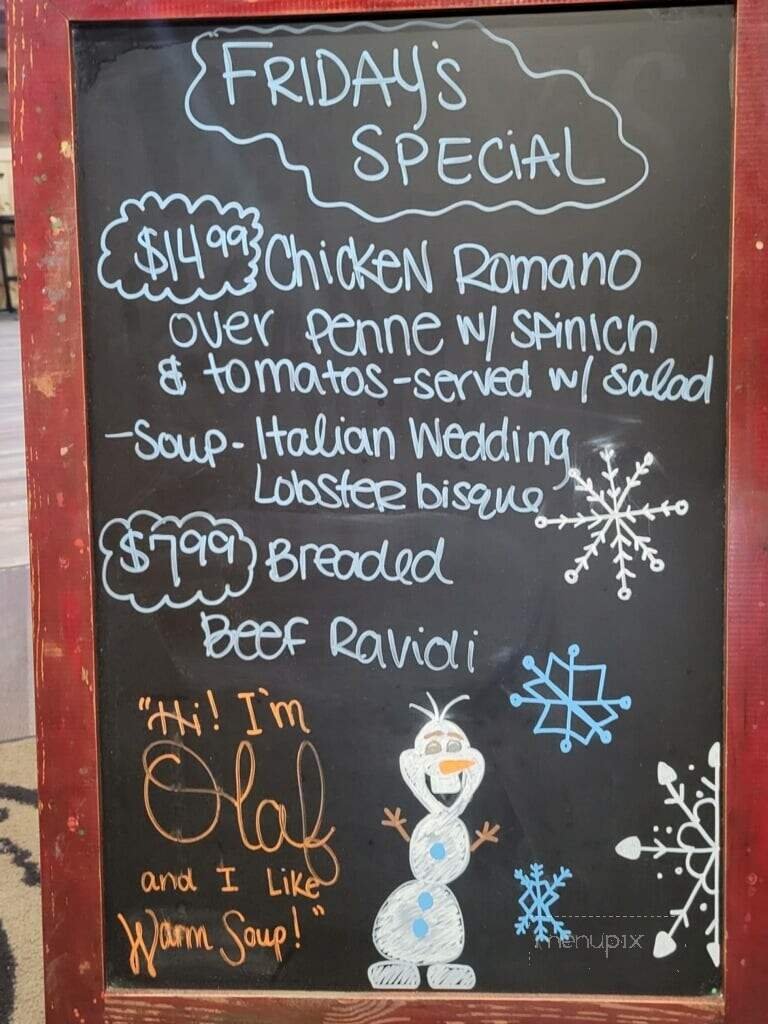 FRIDAY's
SPECiAL
$14.99 Chicken Romano
over penne w/ spinich
& tomatos - served w/ salad
- Soup - Italian Wedding
Lobster bisque
$7.99 Breaded
Beef Ravioli
"Hi! I'm
Olaf
and I Like
Warm Soup!"
menupix